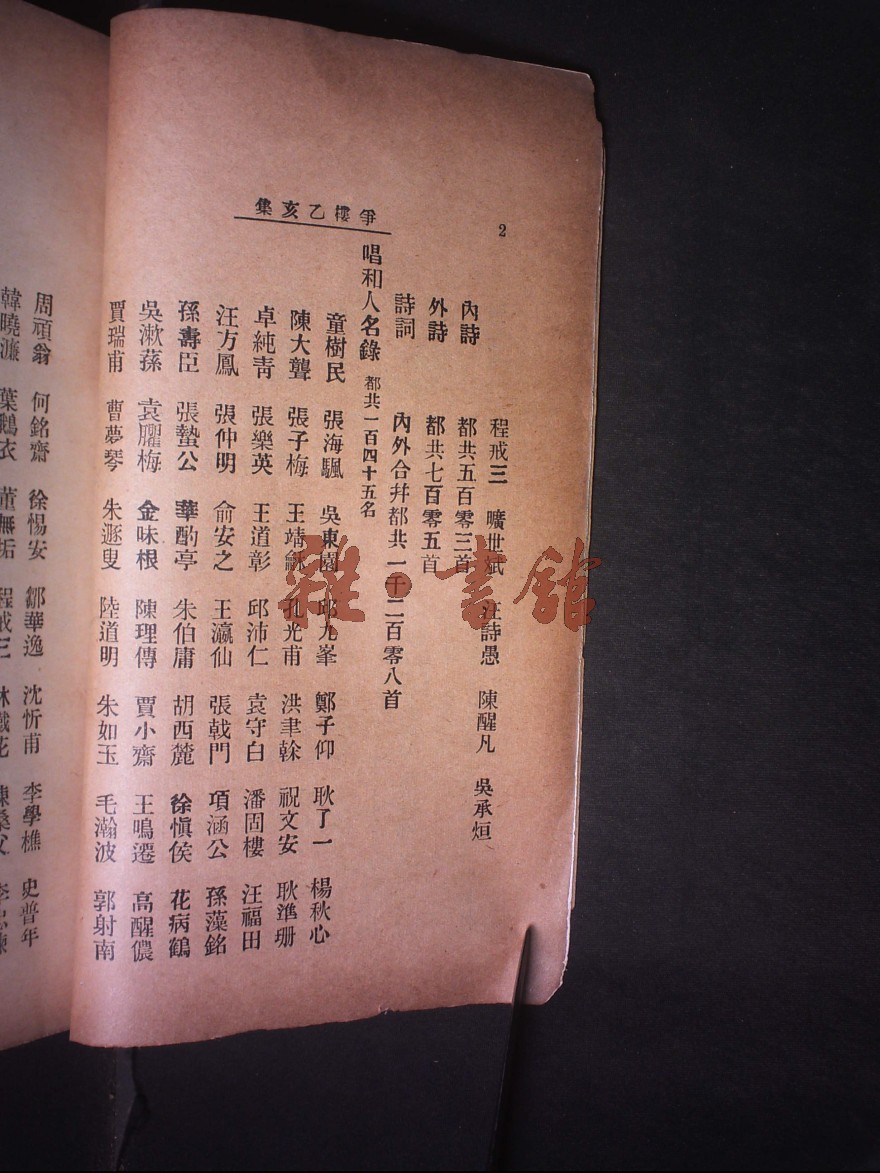 爭樓乙亥集
2
程戒三 曠世斌 汪詩愚 陳醒凡 吳承烜
內詩 都共五百零三首
外詩 都共七百零五首
詩詞 內外合幷都共一千二百零八首
唱和人名錄 都共一百四十五名
童樹民 張海颿 吳東園 邱九峯 鄭子仰 耿了一 楊秋心
陳大聾 張子梅 王靖龢 孔光甫 洪聿榦 祝文安 耿準珊
卓純靑 張樂英 王道彰 邱沛仁 袁守白 潘固樓 汪福田
汪方鳳 張仲明 俞安之 王瀛仙 張戟門 項涵公 孫藻銘
孫壽臣 張蟄公 華酌亭 朱伯庸 胡西麓 徐愼侯 花病鶴
吳漱蓀 袁臞梅 金味根 陳理傳 賈小齋 王鳴遷 高醒儂
賈瑞甫 曹夢琴 朱遯叟 陸道明 朱如玉 毛瀚波 郭射南
周頑翁 何銘齋 徐惕安 鄒華逸 沈忻甫 李學樵 史普年
韓曉濂 葉鶴衣 董無垢 程戒三
雜·書館